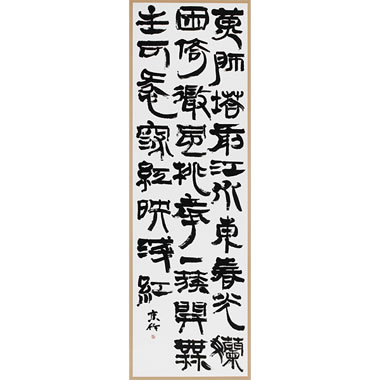 黃師塔前江水東春光嬾
困倚微風桃華一簇開無
主可愛深紅映淺紅